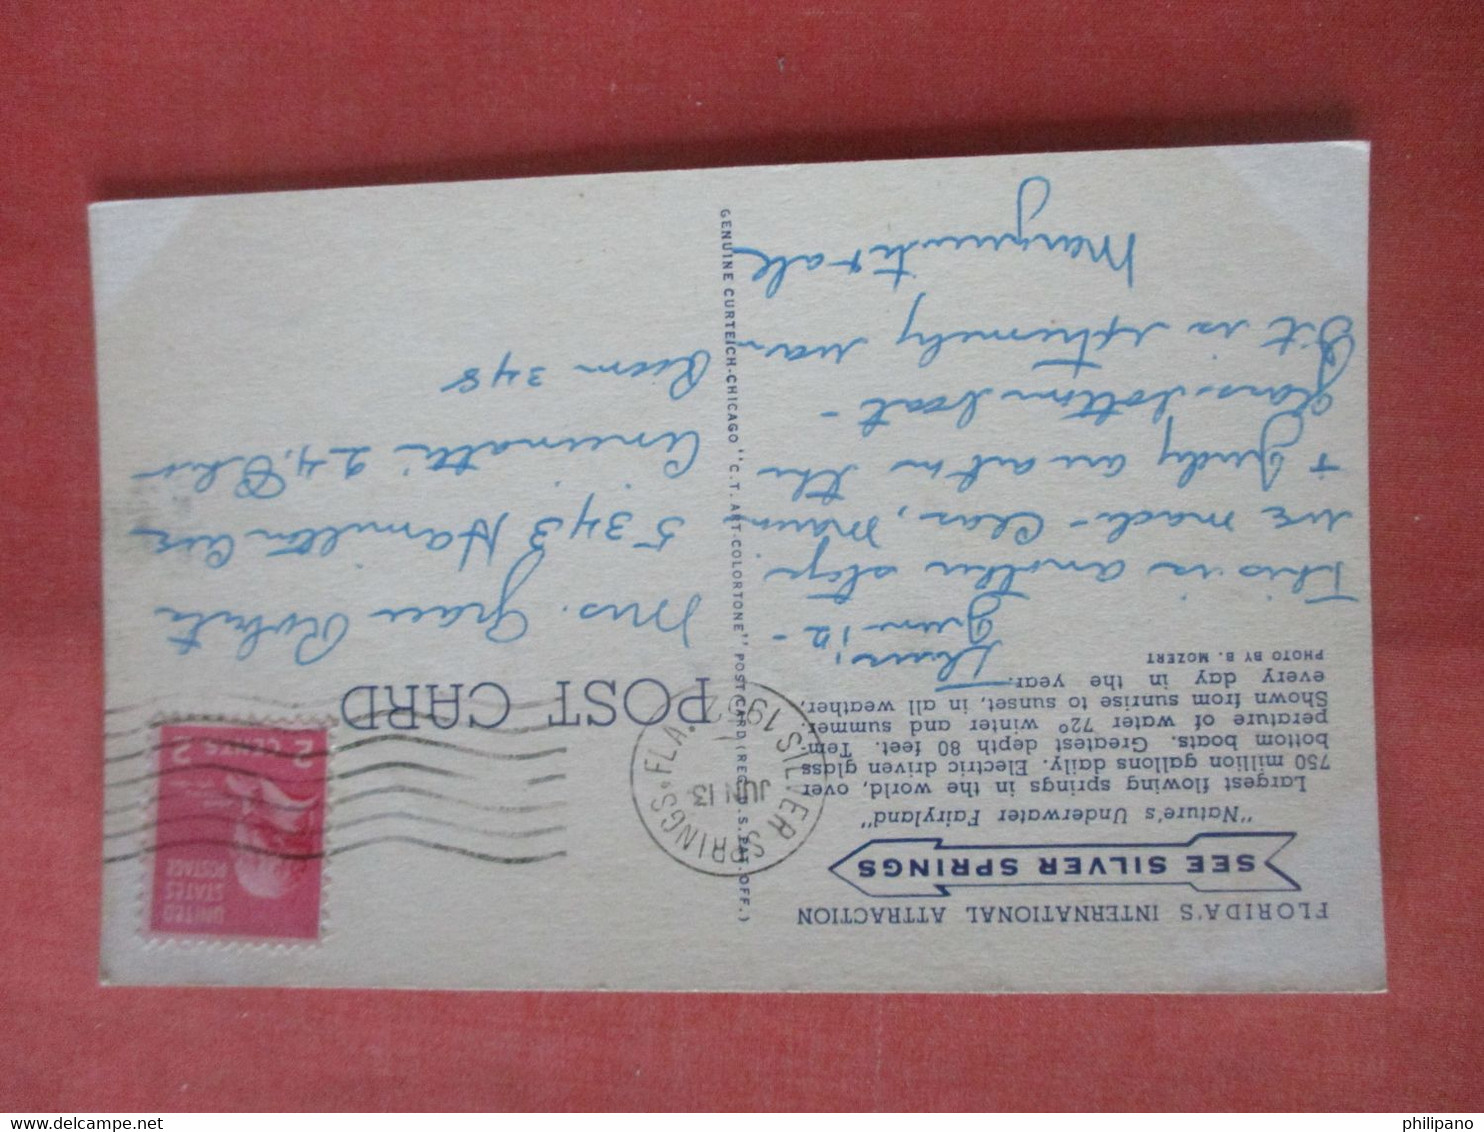 FLORIDA'S INTERNATIONAL ATTRACTION
SEE SILVER SPRINGS
"Nature's Underwater Fairyland"
Largest flowing springs in the world, over
750 million gallons daily. Electric driven glass
bottom boats. Greatest depth 80 feet. Tem-
perature of water 72º winter and summer.
Shown from sunrise to sunset, in all weather,
every day in the year.
PHOTO BY B. MOZERT
This is another stop
we made - Clar,
+ Judy are out in the
glass-bottom boat -
It is extremely warm
Marguerite + ale
GENUINE CURTEICH-CHICAGO "C.T. ART-COLORTONE" POST CARD (REG. U.S. PAT. OFF.)
SILVER SPRINGS, FLA.
JUN 13
1952
POST CARD
UNITED
STATES
POSTAGE
2 CENTS 2
Mrs. Grace Roberts
5343 Hamilton Ave
Cincinnati 24, Ohio
Room 348
philipano
www.delcampe.net